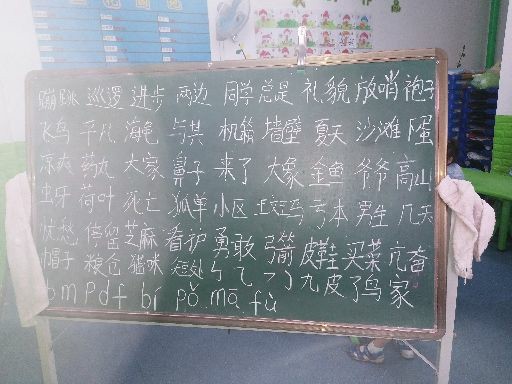 蹦跳 巡逻 进步 两边 同学 总是 礼貌 放哨 袍子
飞鸟 平凡 海龟 与其 机箱 墙壁 夏天 沙滩 蛋
凉爽 药丸 大家 鼻子 来了 大象 金鱼 爷爷 高山
虫牙 荷叶 死亡 孤单 小区 亏本 男生 几天
忧愁 停留 芝麻 看护 勇敢 弓箭 皮鞋 买菜 亢奋
帽子 粮仓 猫咪 短处 ㄣ ㄟ 九 皮 了 鸟 家
b m p d f bí pǒ mā fù